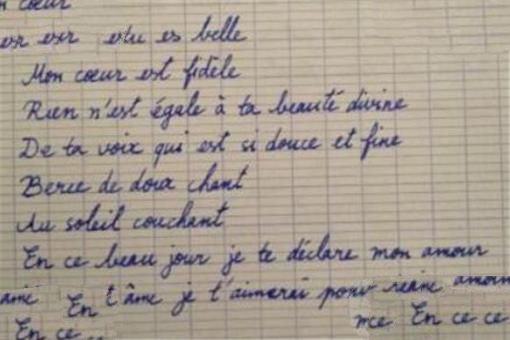 cœur
es belle
Mon cœur est fidèle
Rien n'est égale à ta beauté divine
De ta voix qui est si douce et fine
Berce de doux chant
Au soleil couchant
En ce beau jour je te déclare mon amour
En t'âme je t'aimerai pour amour
En ce En ce ce